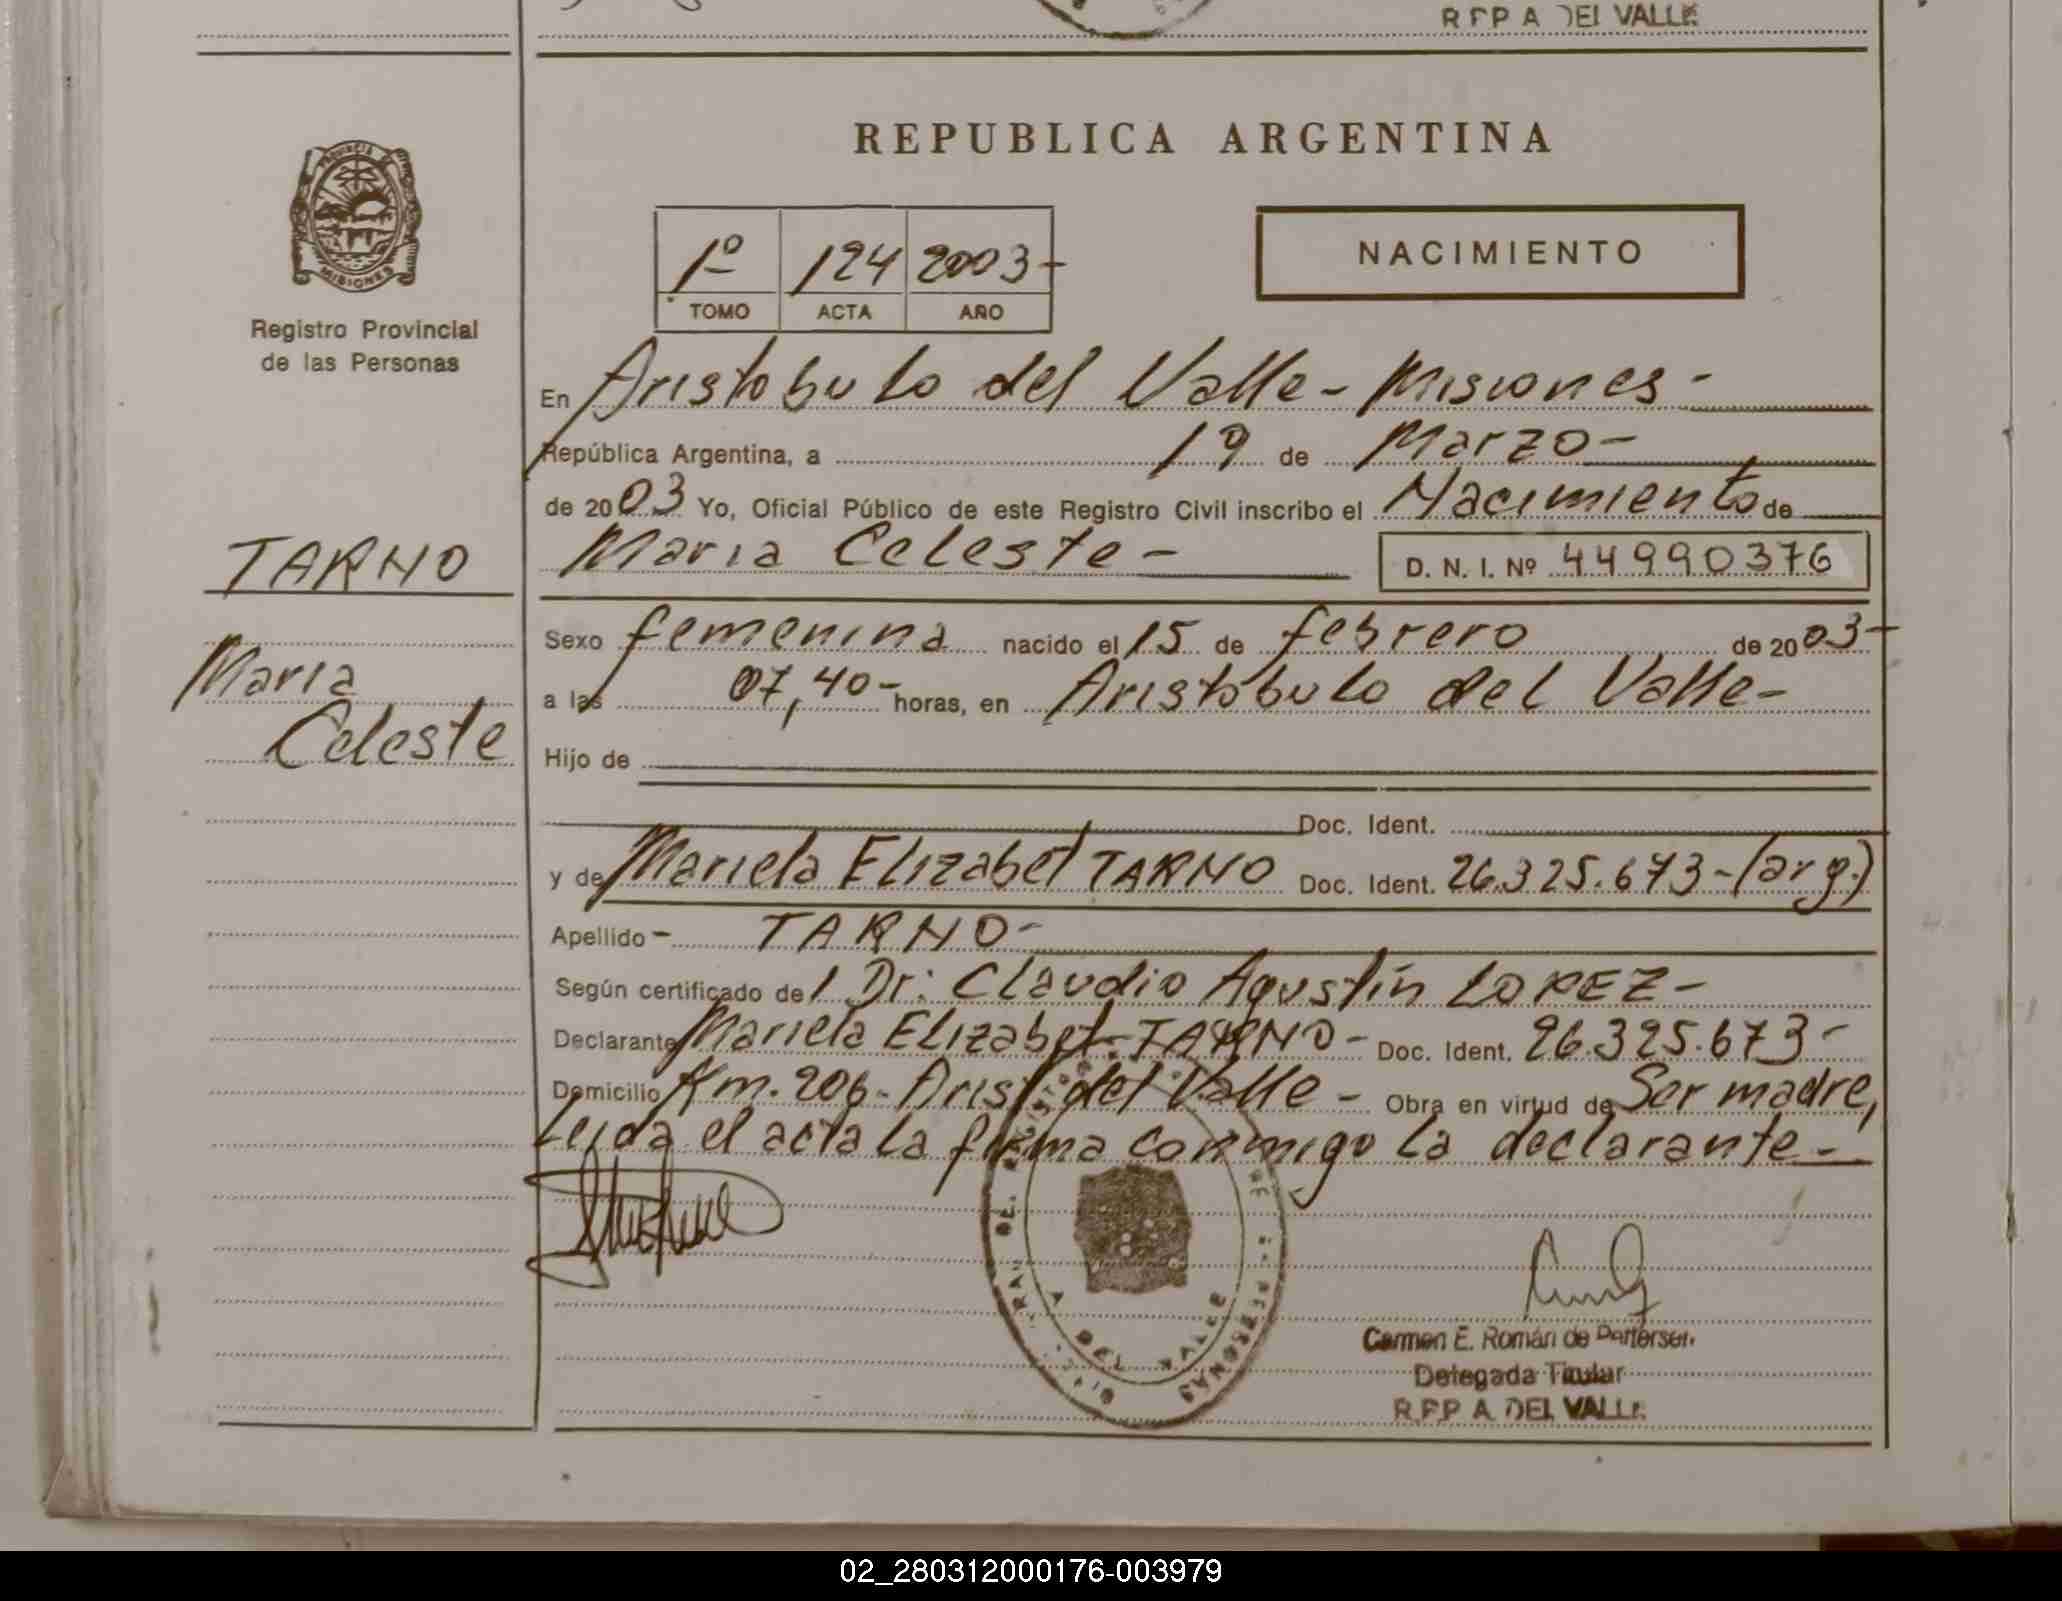 R P P A DEL VALLE
REPUBLICA ARGENTINA
PROVINCIA DE
MISIONES
Registro Provincial
de las Personas
1º 124 2003-
TOMO ACTA AÑO
NACIMIENTO
En Aristobulo del Valle - Misiones -
República Argentina, a 19 de Marzo -
de 2003 Yo, Oficial Público de este Registro Civil inscribo el Nacimiento de
Maria Celeste - D. N. I. Nº 44990376
TARNO
Maria
Celeste
Sexo femenina nacido el 15 de febrero de 2003-
a las 07,40- horas, en Aristóbulo del Valle-
Hijo de
Doc. Ident.
y de Mariela Elizabet TARNO Doc. Ident. 26.325.673-(arg.)
Apellido - TARNO-
Según certificado del Dr: Claudio Agustín LOPEZ-
Declarante Mariela Elizabet TARNO- Doc. Ident. 26.325.673-
Domicilio Km. 206- Arist. del Valle - Obra en virtud de Ser madre,
Leida el acta la firma conmigo la declarante-
DEL VALLE
PERSONAS
Carmen E. Román de
Delegada Titular
R.P.P A. DEL VALLE
02_280312000176-003979